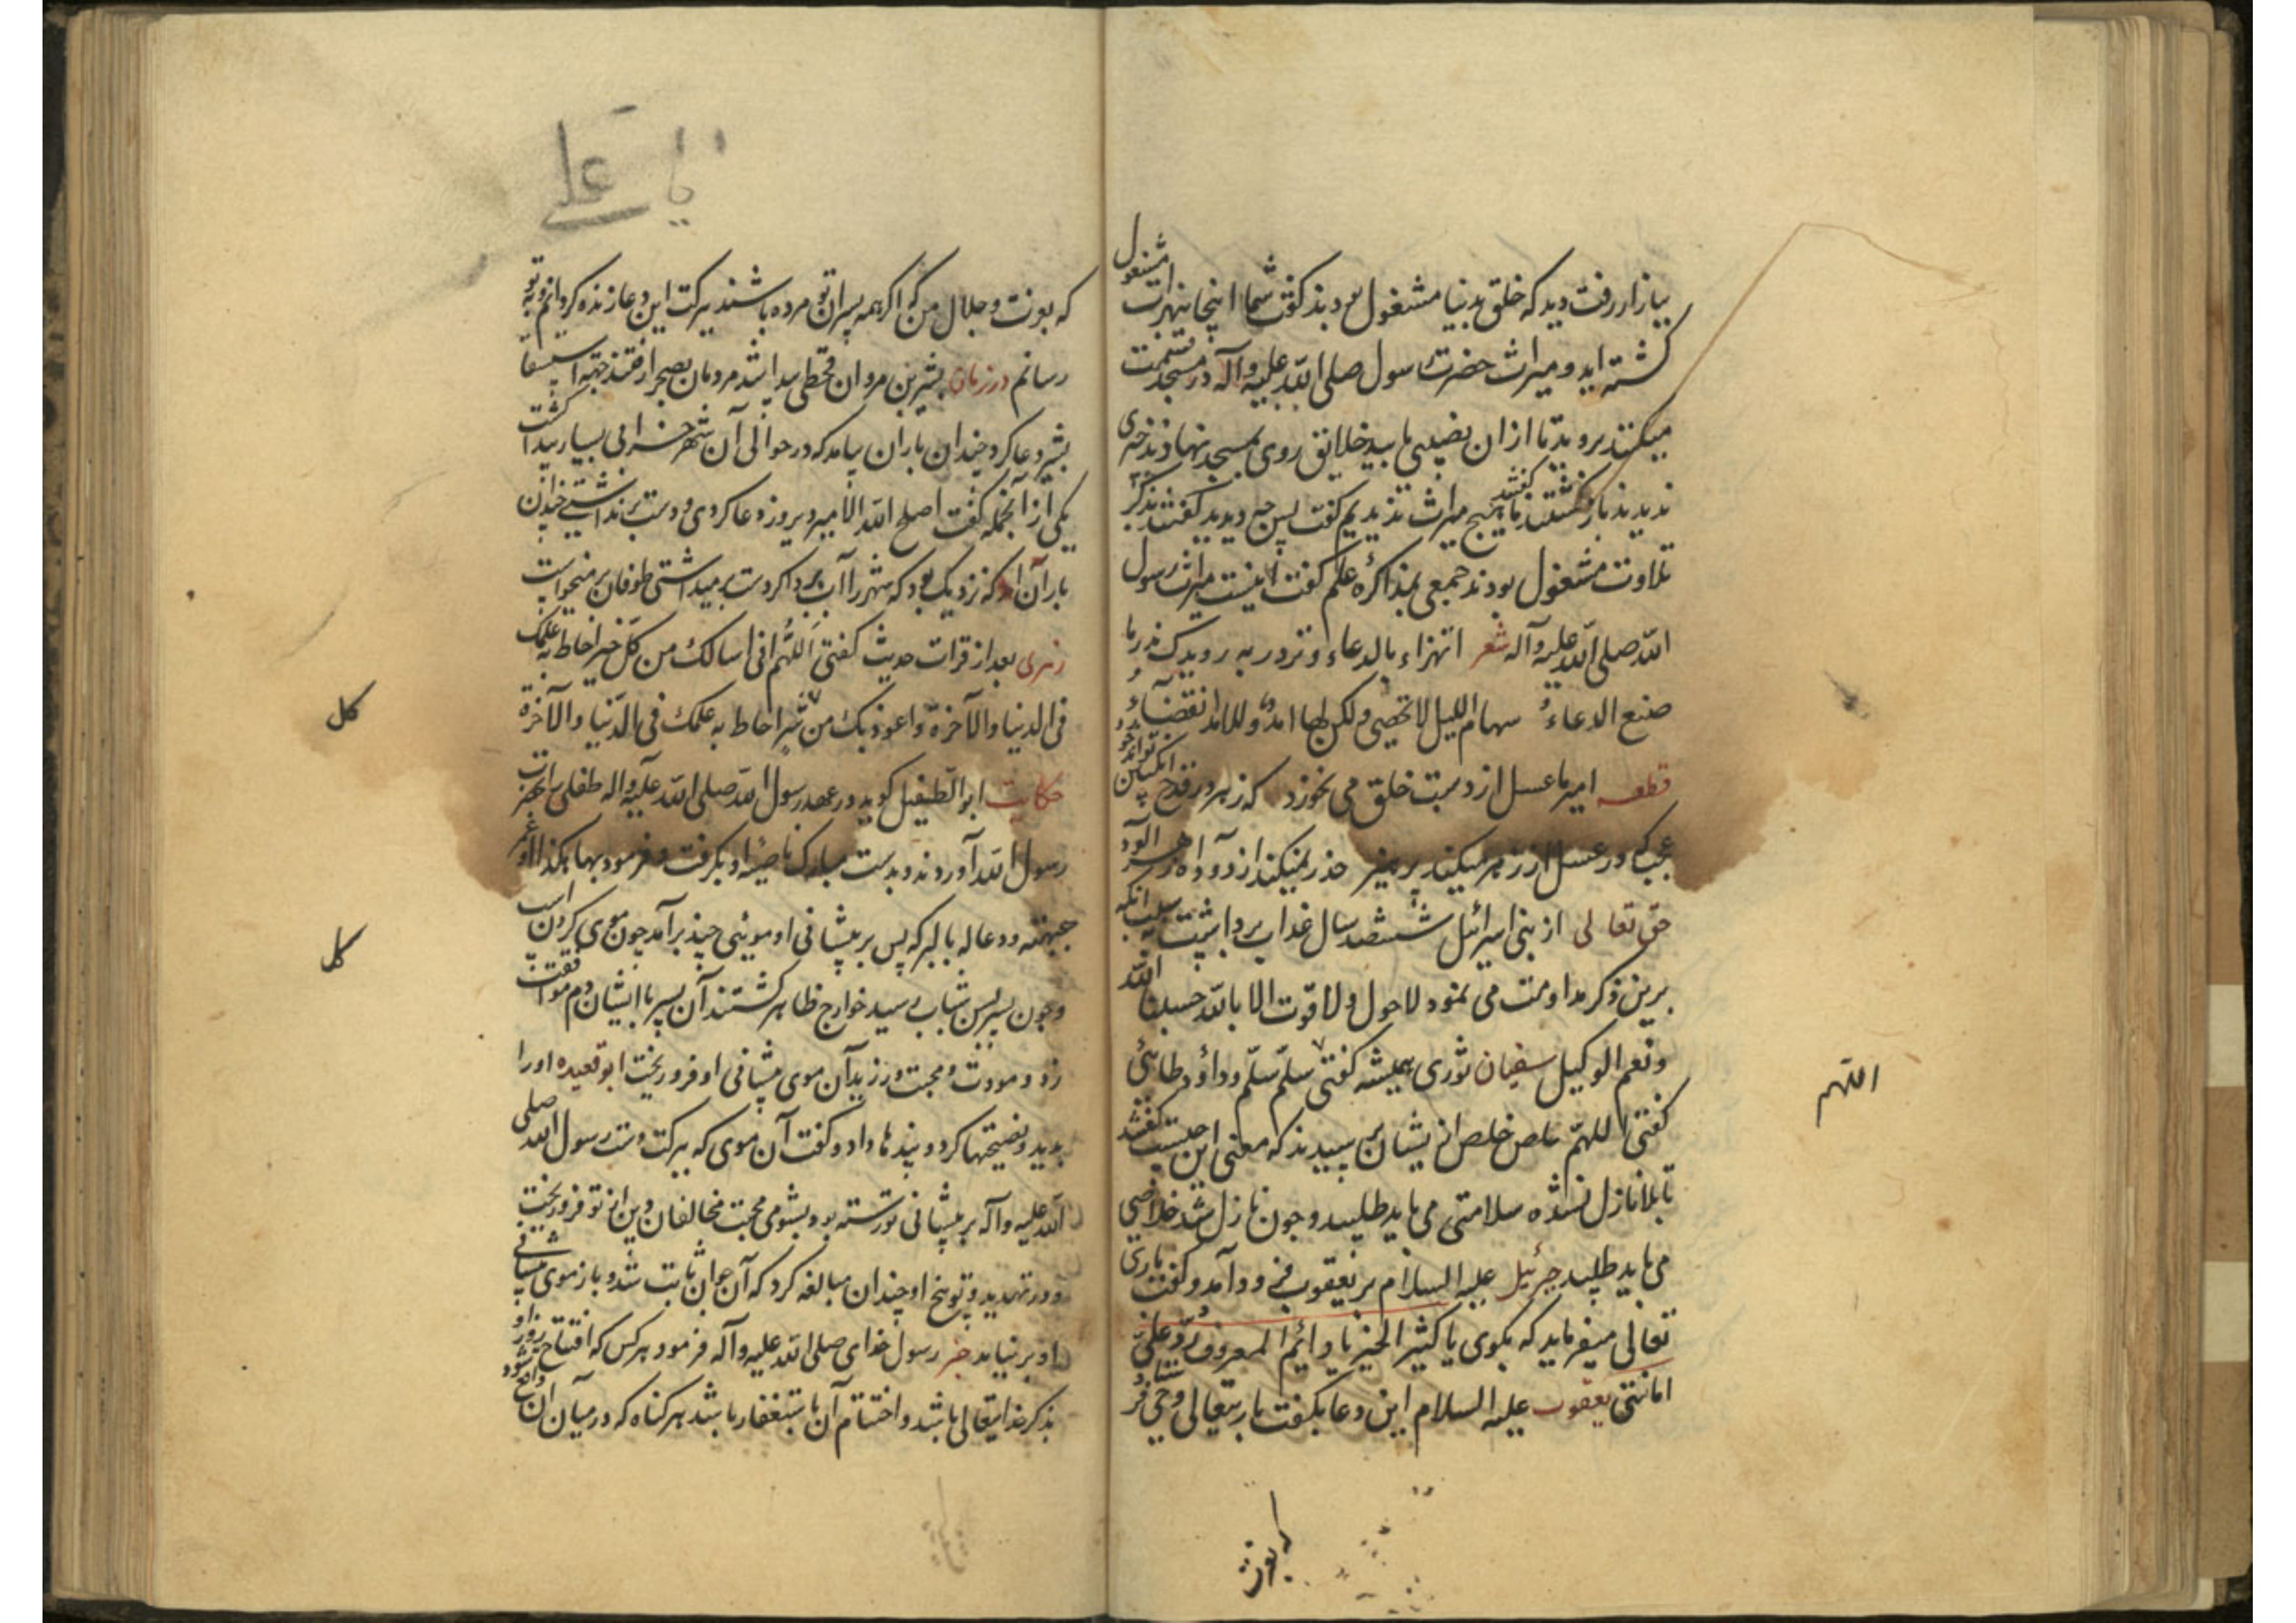 ببازار رفت دید که خلق بدنیا مشغول بودند گفت شما اینجا بنهرات مشغول
گشته اید و میراث حضرت رسول صلی الله علیه وآله در مسجد قسمت
میکنند بروید تا از ان نصیبی یابید خلایق روی بمسجد نهادند چیزی
ندیدند باز گشتند گفتند ما هیچ میراث ندیدیم گفت پس چه دیدید گفتند بذکر
تلاوت مشغول بودند جمعی بمذاکرهٔ علم گفت اینست میراث رسول
الله صلی الله علیه وآله شعر اتهزاء بالدعاء وتزدریه رویدک ندر ما
صنع الدعاءُ سهام اللیل لاتخصی ولکن لها امد وللامد انقضاءُ
قطعه امیر ما عسل از دست خلق می نخورد که زهر در قدح انگبین تواند بود
عجب که در عسل از زهر میکند پرهیز حذر نمیکند از دود آه زهر آلود
حق تعالی از بنی اسرائل ششصد سال عذاب برداشت بسبب انکه
برین ذکر مداومت می نمود لاحول ولا قوت الا بالله حسبنا الله
ونعم الوکیل سفیان ثوری همیشه گفتی سلّم سلّم وداؤد طائی
گفتی اللهمّ خلص خلص ازیشان پرسیدند که معنی این چیست گفتند
تا بلا نازل نشده سلامتی می باید طلبید وچون نازل شد خلاصی
می باید طلبید جبرئیل علیه السلام بر یعقوب فرود آمد وگفت باری
تعالی میفرماید که بگوی یا کثیر الخیر یا دائم المعروف رُدّ علیّ
امانتی یعقوب علیه السلام این دعا بگفت باریتعالی وحی فرستاد
که بعزت
اللهم
یا علی
که بعزت وجلال من که اگر همه پسران تو مرده باشند ببرکت این دعا زنده گردانم وبتو
رسانم در زمان بشر بن مروان قحطی پیدا شد مردمان بصحرا رفتند جهة استسقا
بشر دعا کرد چندان باران بیامد که در حوالی آن شهر خرابی بسیار پیدا گشت
یکی از آنجمله گفت اصلح الله الامیر دیروز دعا کردی ودست برنداشتی چندان
باران آمد که نزدیک بود که شهر را آب برد اگر دست برمیداشتی طوفان برمیخواست
زهری بعد از قرات حدیث گفتی اللّهم انی اسالک من کل خیر احاط به علمک
فی الدنیا والآخرة واعوذ بک من شرّ احاط به علمک فی الدنیا والآخرة
حکایت ابو الطفیل گوید در عهد رسول الله صلی الله علیه واله طفلی را بحضرت
رسول الله آوردند وبدست مبارک ناصیهٔ او بگرفت وفرمود بهما هکذا او غمز
جبهته ودعا له بالبرکة پس بر پیشانی او موئی چند برآمد چون موی گردن اسب
وچون پسر بسن شباب رسید خوارج ظاهر گشتند آن پسر با ایشان دم موافقت
زد ومودت ومحبت ورزید آن موی پیشانی او فرو ریخت ابو قعیده اورا
بدید ونصیحتها کرد وپندها داد وگفت آن موی که ببرکت دست رسول الله صلی
الله علیه وآله بر پیشانی تو رسته بود بشومی محبت مخالفان دین از تو فرو ریخت
ودر تهدید وتوبیخ او چندان مبالغه کرد که آن جوان تائب شد وباز موی پیشانی
او برنیامد خبر رسول خدای صلی الله علیه وآله فرمود هر کس که افتتاح روز او
بذکر خدایتعالی باشد واختتام آن باستغفار باشد هر گناه که در میان آن واقع شود
کل
کل